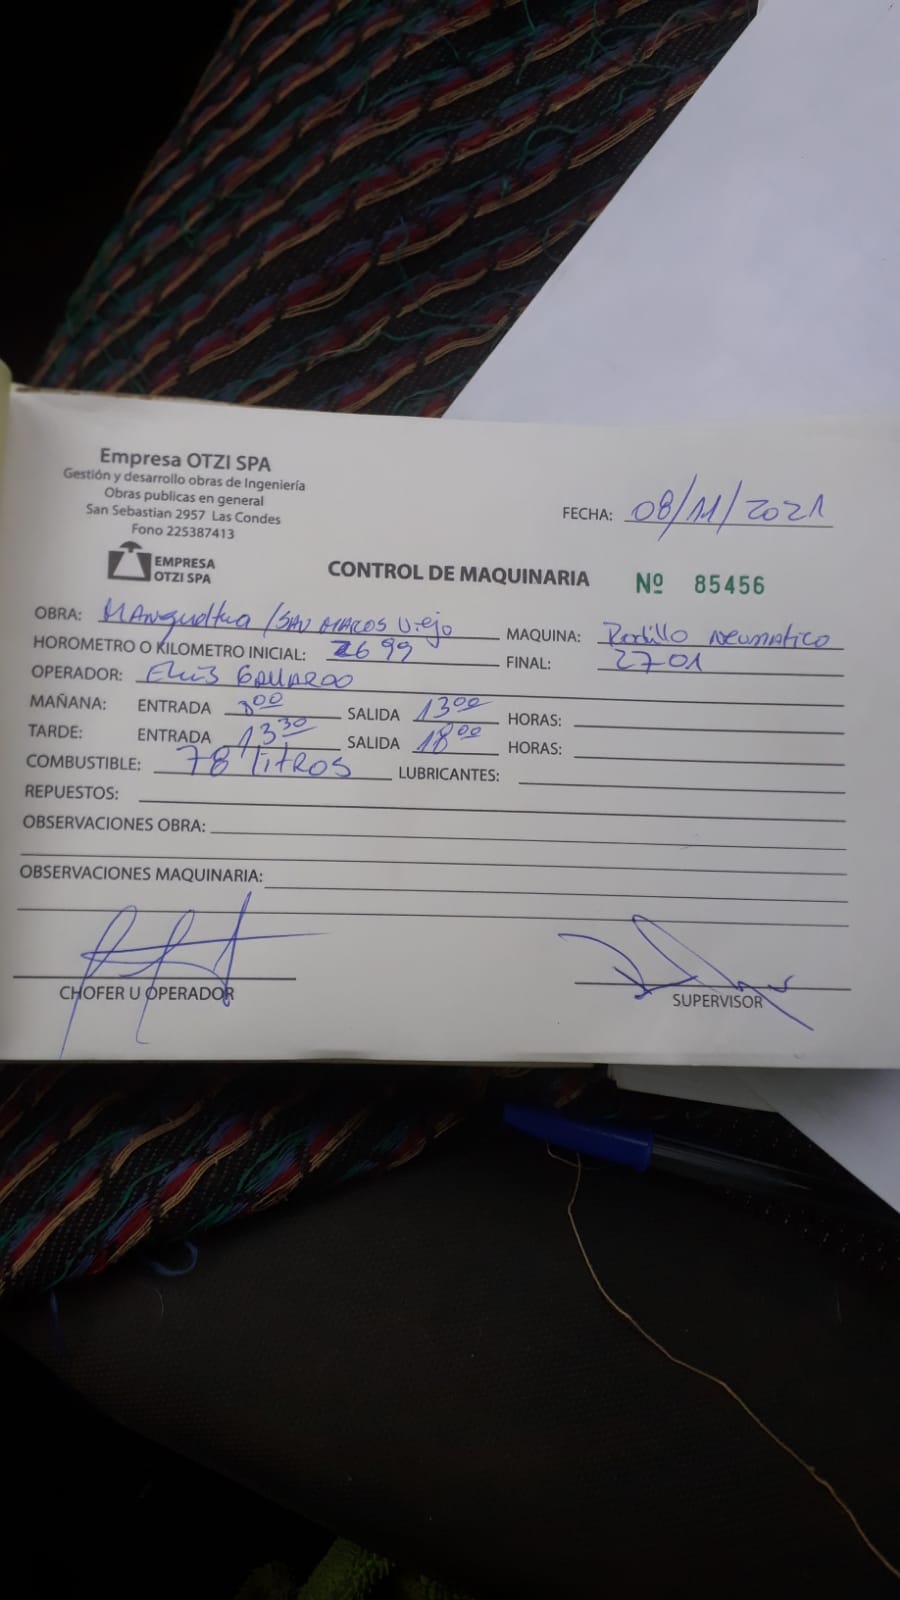 Empresa OTZI SPA
Gestión y desarrollo obras de Ingeniería
Obras publicas en general
San Sebastian 2957 Las Condes
Fono 225387413
EMPRESA
OTZI SPA
FECHA: 08/11/2021
CONTROL DE MAQUINARIA Nº 85456
OBRA: /SAN MARCOS Viejo MAQUINA: Rodillo Neumatico
HOROMETRO O KILOMETRO INICIAL: 2699 FINAL: 2701
OPERADOR: GALLARDO
MAÑANA: ENTRADA 8:00 SALIDA 13:00 HORAS:
TARDE: ENTRADA 13:30 SALIDA 18:00 HORAS:
COMBUSTIBLE: 78 litROS LUBRICANTES:
REPUESTOS:
OBSERVACIONES OBRA:
OBSERVACIONES MAQUINARIA:
CHOFER U OPERADOR SUPERVISOR